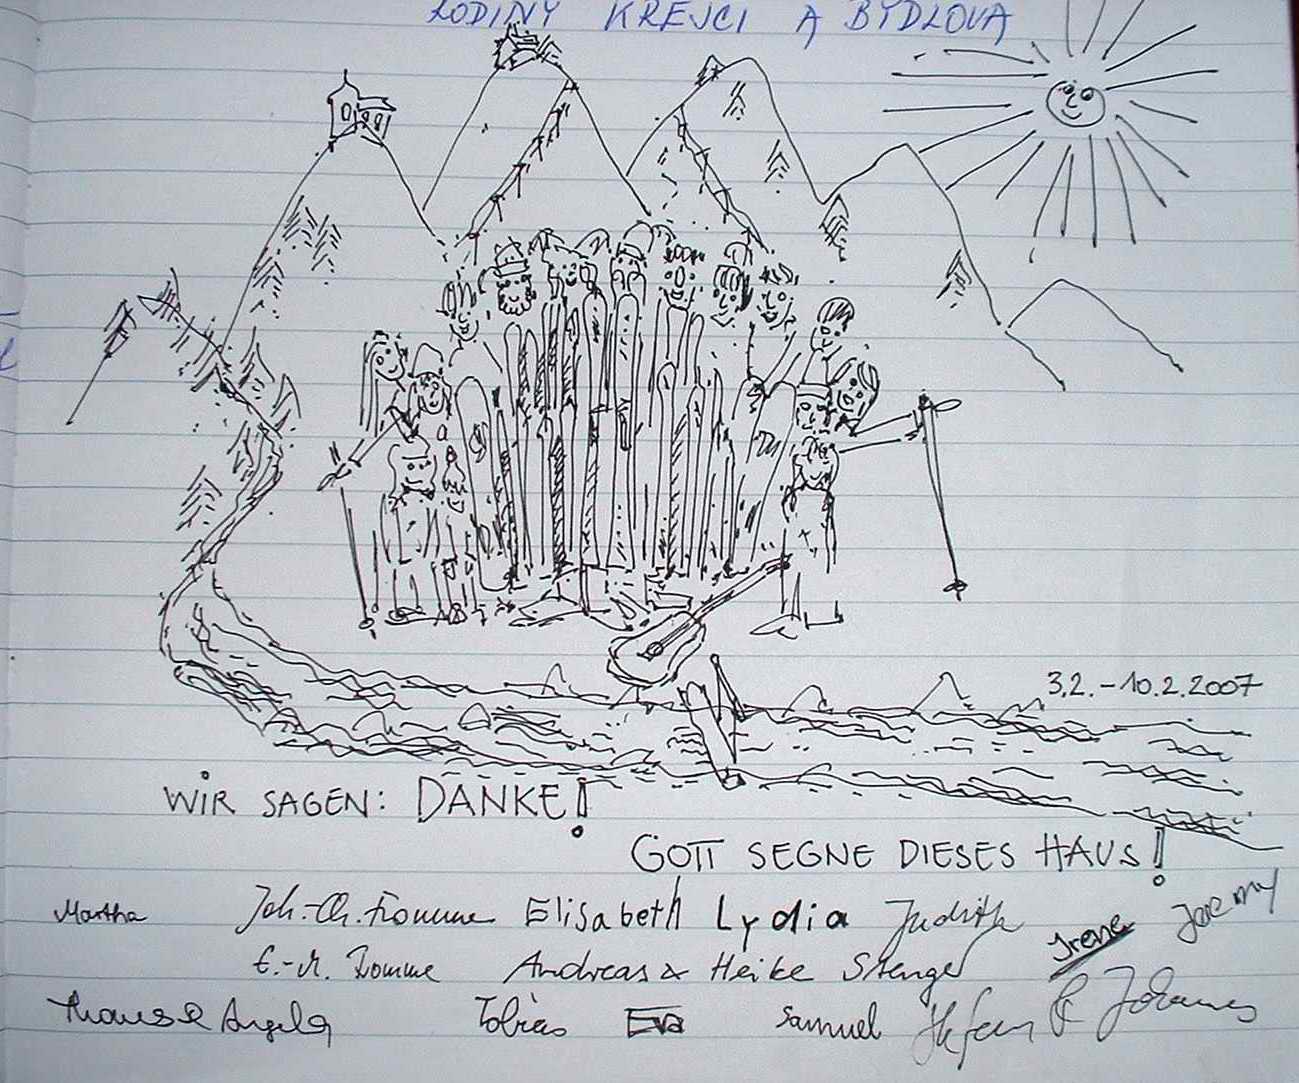 RODINY KREJCI A BYDLOVA
3.2.-10.2.2007
WIR SAGEN: DANKE!
GOTT SEGNE DIESES HAUS!
Martha Joh.-Ch. Fromme Elisabeth Lydia Judith Irene Jeremy
E.-M. Fromme Andreas & Heike Stenger
Thomas & Angela Tobias Eva Samuel Stefan & Johannes